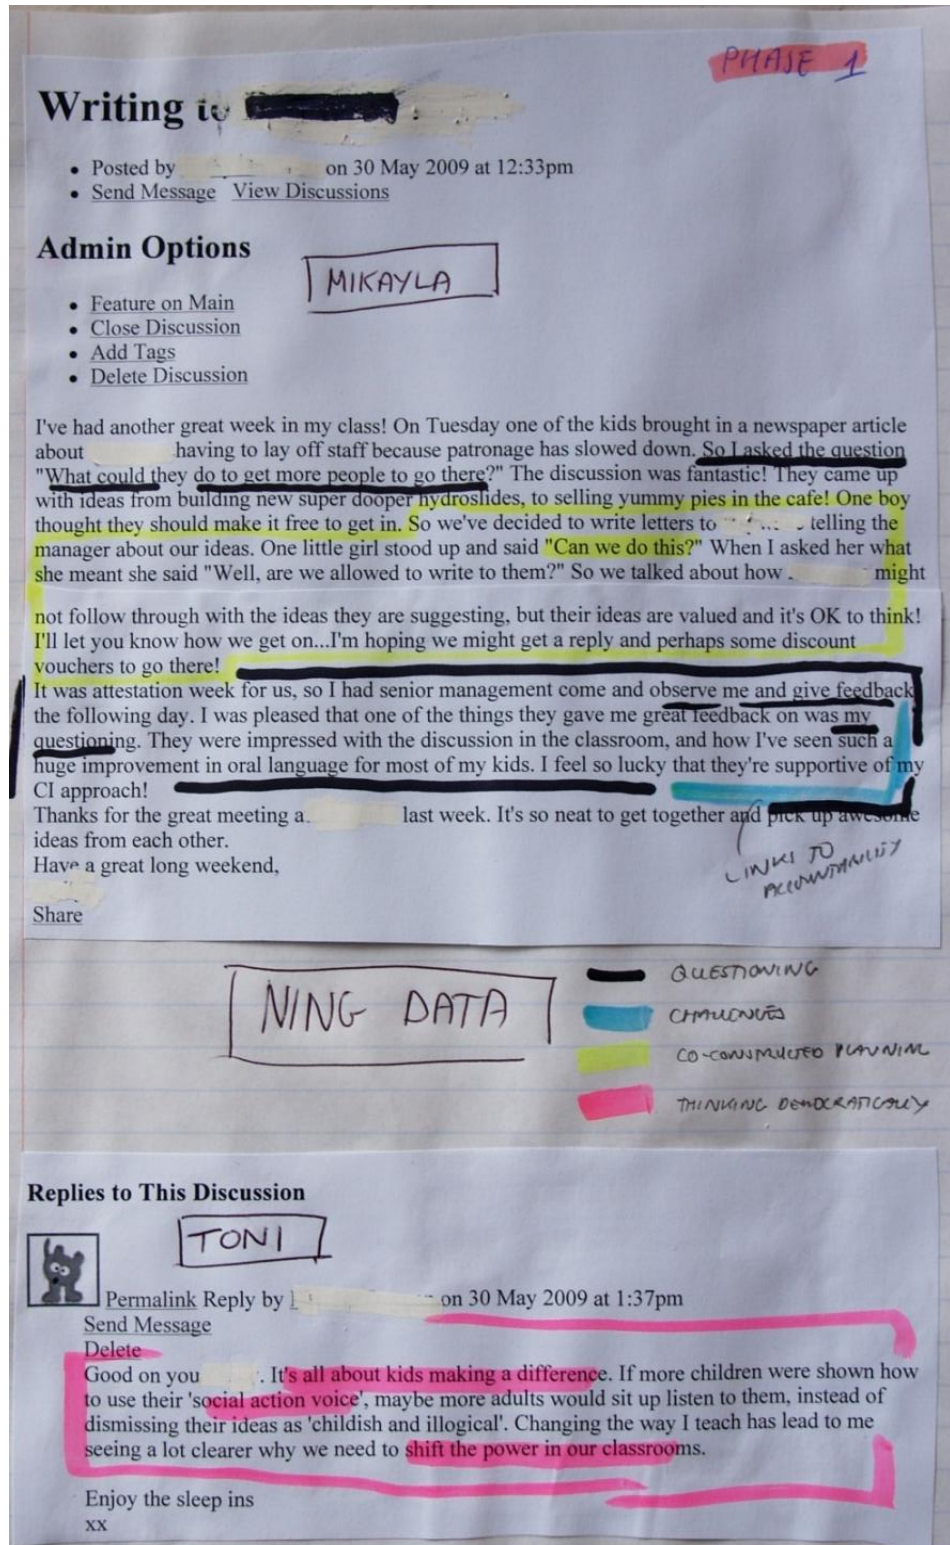 PHASE 1
Writing to
Posted by on 30 May 2009 at 12:33pm
Send Message View Discussions
Admin Options
MIKAYLA
Feature on Main
Close Discussion
Add Tags
Delete Discussion
I've had another great week in my class! On Tuesday one of the kids brought in a newspaper article
about having to lay off staff because patronage has slowed down. So I asked the question
"What could they do to get more people to go there?" The discussion was fantastic! They came up
with ideas from building new super dooper hydroslides, to selling yummy pies in the cafe! One boy
thought they should make it free to get in. So we've decided to write letters to telling the
manager about our ideas. One little girl stood up and said "Can we do this?" When I asked her what
she meant she said "Well, are we allowed to write to them?" So we talked about how might
not follow through with the ideas they are suggesting, but their ideas are valued and it's OK to think!
I'll let you know how we get on...I'm hoping we might get a reply and perhaps some discount
vouchers to go there!
It was attestation week for us, so I had senior management come and observe me and give feedback
the following day. I was pleased that one of the things they gave me great feedback on was my
questioning. They were impressed with the discussion in the classroom, and how I've seen such a
huge improvement in oral language for most of my kids. I feel so lucky that they're supportive of my
CI approach!
Thanks for the great meeting a last week. It's so neat to get together and pick up awesome
ideas from each other.
Have a great long weekend,
LINKS TO
ACCOUNTABILITY
Share
NING DATA
QUESTIONING
CHALLENGES
CO-CONSTRUCTED PLANNING
THINKING DEMOCRATICALLY
Replies to This Discussion
TONI
Permalink Reply by on 30 May 2009 at 1:37pm
Send Message
Delete
Good on you . It's all about kids making a difference. If more children were shown how
to use their 'social action voice', maybe more adults would sit up listen to them, instead of
dismissing their ideas as 'childish and illogical'. Changing the way I teach has lead to me
seeing a lot clearer why we need to shift the power in our classrooms.
Enjoy the sleep ins
xx